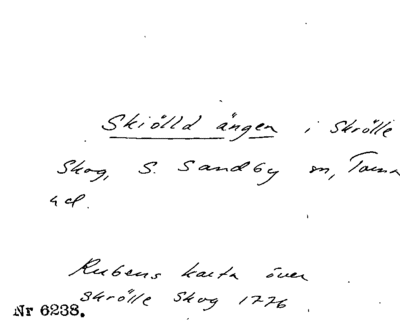 Skiölld ängen i Skrölle
Skog, S. Sandby sn, Torna
hd.
Rubens karta över
Skrölle Skog 1776
Nr 6238.